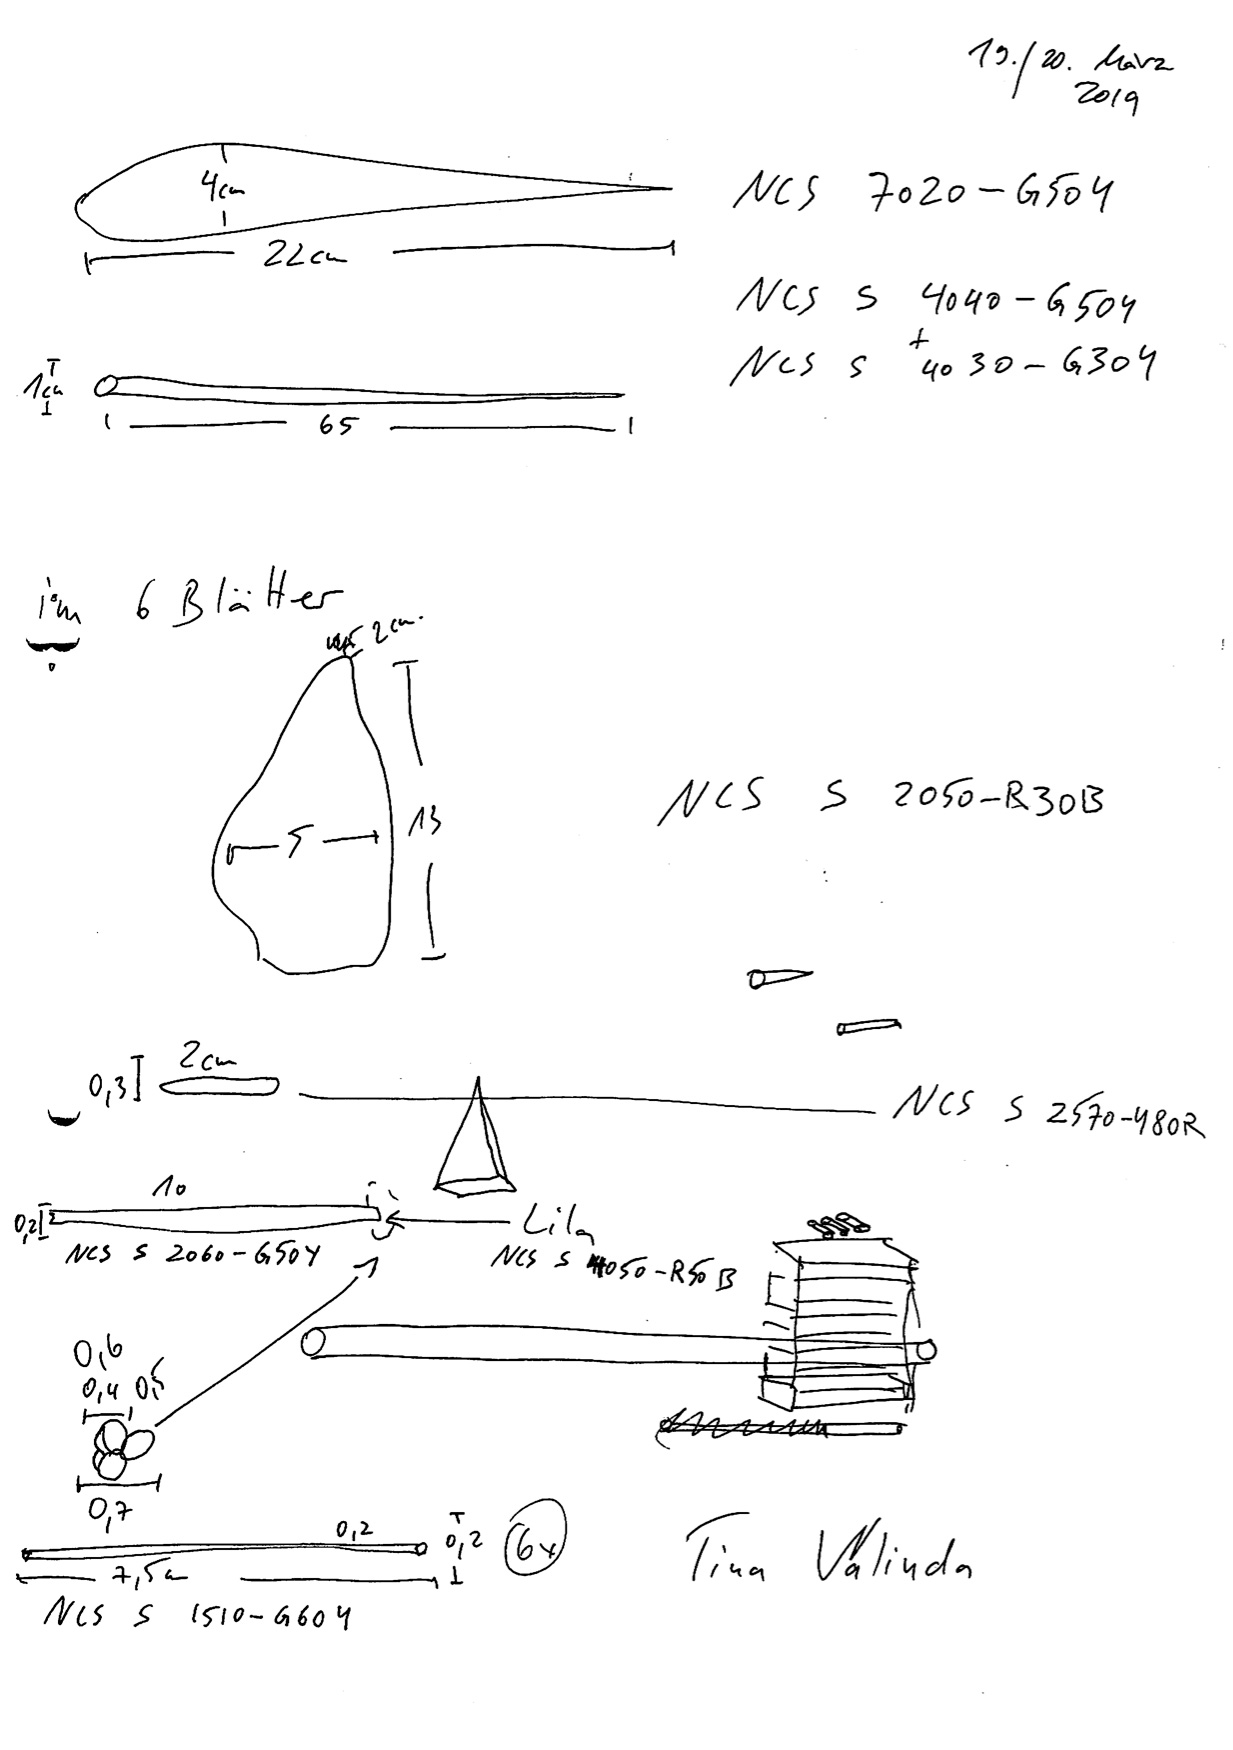 19./20. März
2019
4cm
NCS 7020-G50Y
22cm
NCS S 4040-G50Y
+
NCS S 4030-G30Y
1cm
65
im 6 Blätter
2cm.
NCS S 2050-R30B
13
5
2cm
0,3
NCS S 2570-Y80R
10
0,2
Lila
NCS S 2060-G50Y
NCS S 4050-R50B
0,6
0,4 0,5
0,7
0,2
0,2
6x
7,5cm
Tina Valinda
NCS S 1510-G60Y